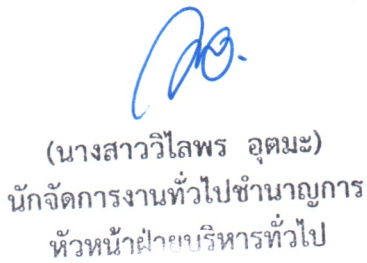 (นางสาววิไลพร อุตมะ)
นักจัดการงานทั่วไปชำนาญการ
หัวหน้าฝ่ายบริหารทั่วไป